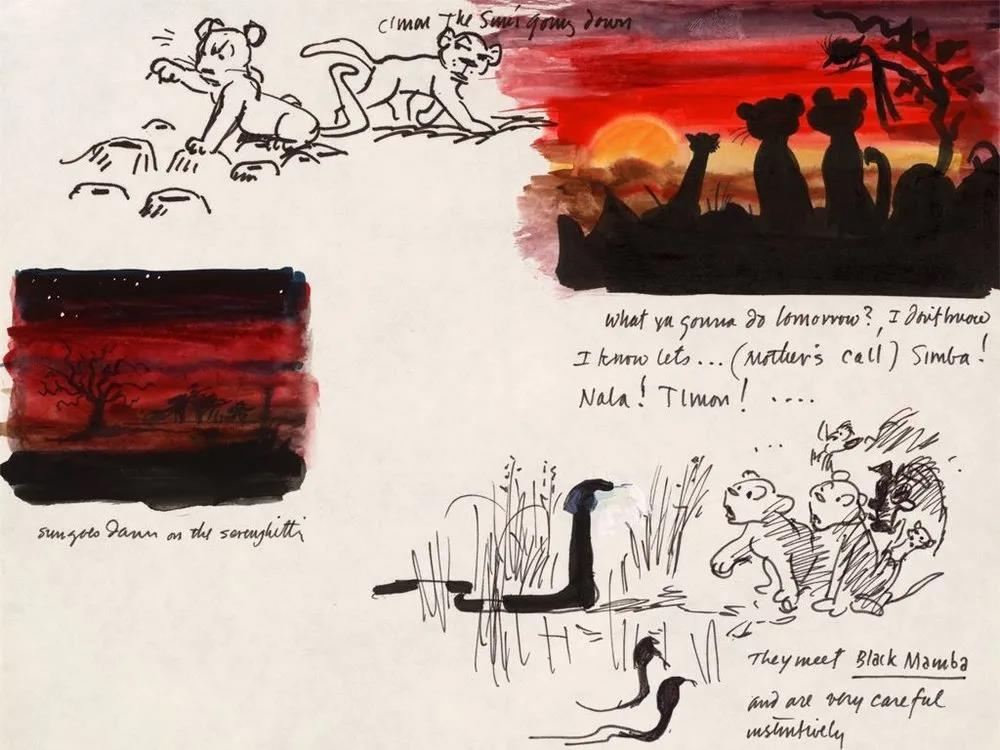 c'mon The Sun's going down
what ya gonna do tomorrow?, I don't know
I know lets... (Mother's call) Simba!
Nala! TImon! ....
sun goes down on the serenghitti
They meet Black Mamba
and are very careful
instintively